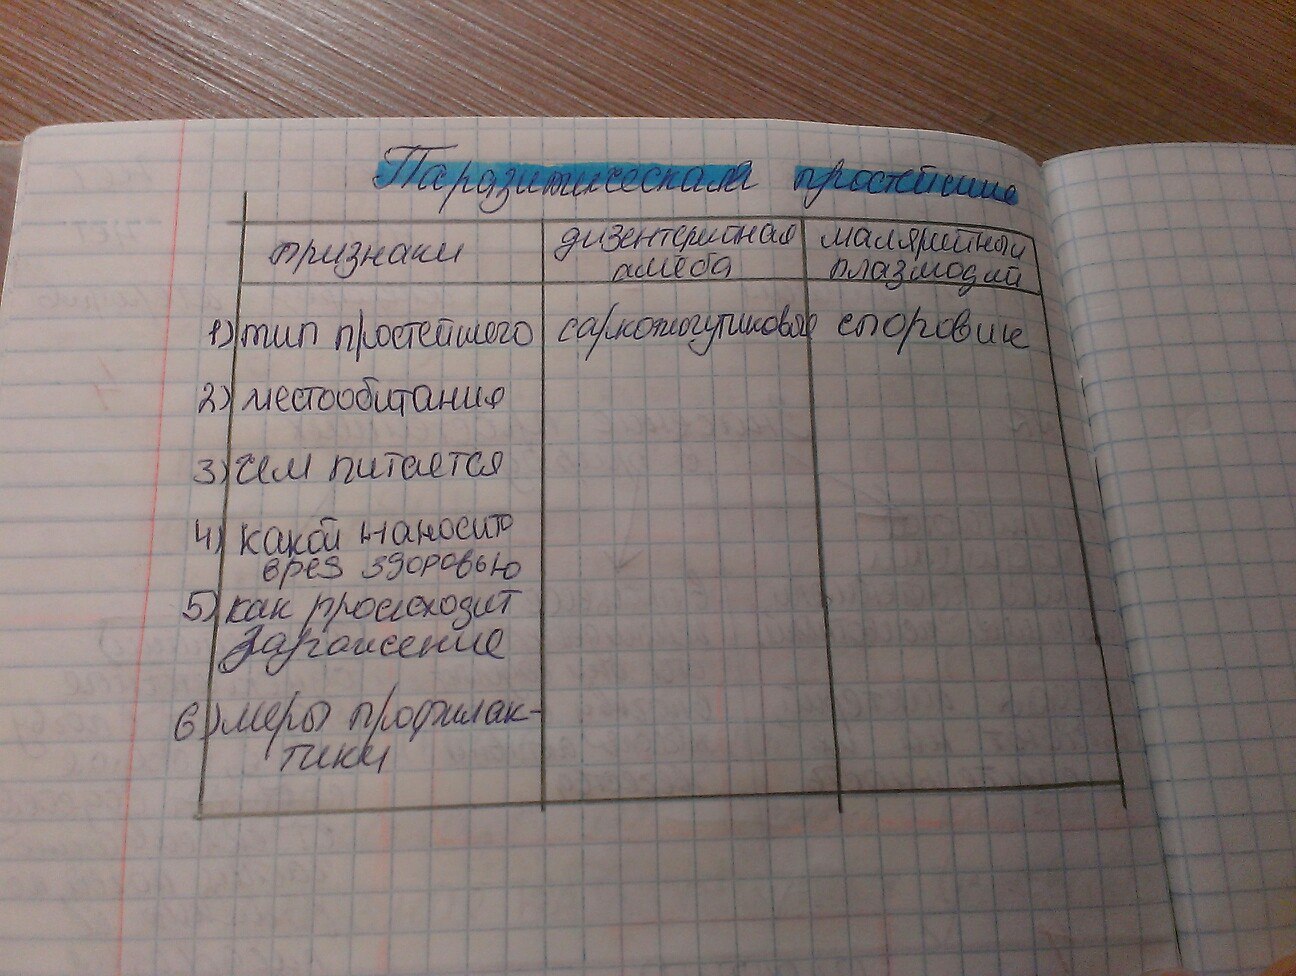 Паразитическая простейшие
признаки дизентерионая амёба малярийный плазмодий
1) тип простейшего саркожгутиковые споровик
2) местообитания
3) чем питается
4) какой наносит
врез здоровью
5) как происходит
заражение
6) меры профилак-
тики